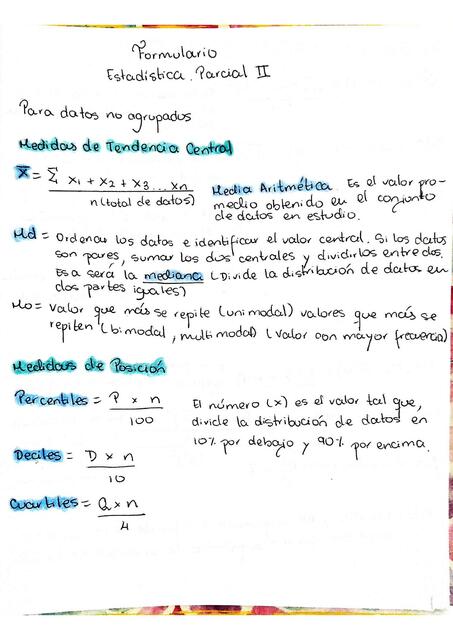 Formulario
Estadística. Parcial II
Para datos no agrupados
Medidas de Tendencia Central
X̄ = Σ x1 + x2 + x3 ... xn / n (total de datos)
Media Aritmética. Es el valor pro-
medio obtenido en el conjunto
de datos en estudio.
Md = Ordenar los datos e identificar el valor central. Si los datos
son pares, sumar los dos centrales y dividirlos entre dos.
Esa será la mediana (Divide la distribución de datos en
dos partes iguales)
Mo = valor que más se repite (unimodal) valores que más se
repiten (bimodal, multimodal) (valor con mayor frecuencia)
Medidas de Posición
Percentiles = P x n / 100
El número (x) es el valor tal que,
divide la distribución de datos en
10% por debajo y 90% por encima.
Deciles = D x n / 10
Cuartiles = Q x n / 4